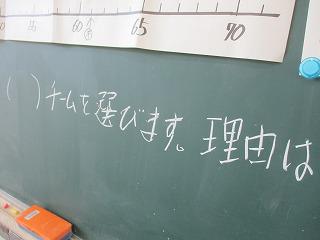 60 65 70
( )チームを選びます。理由は